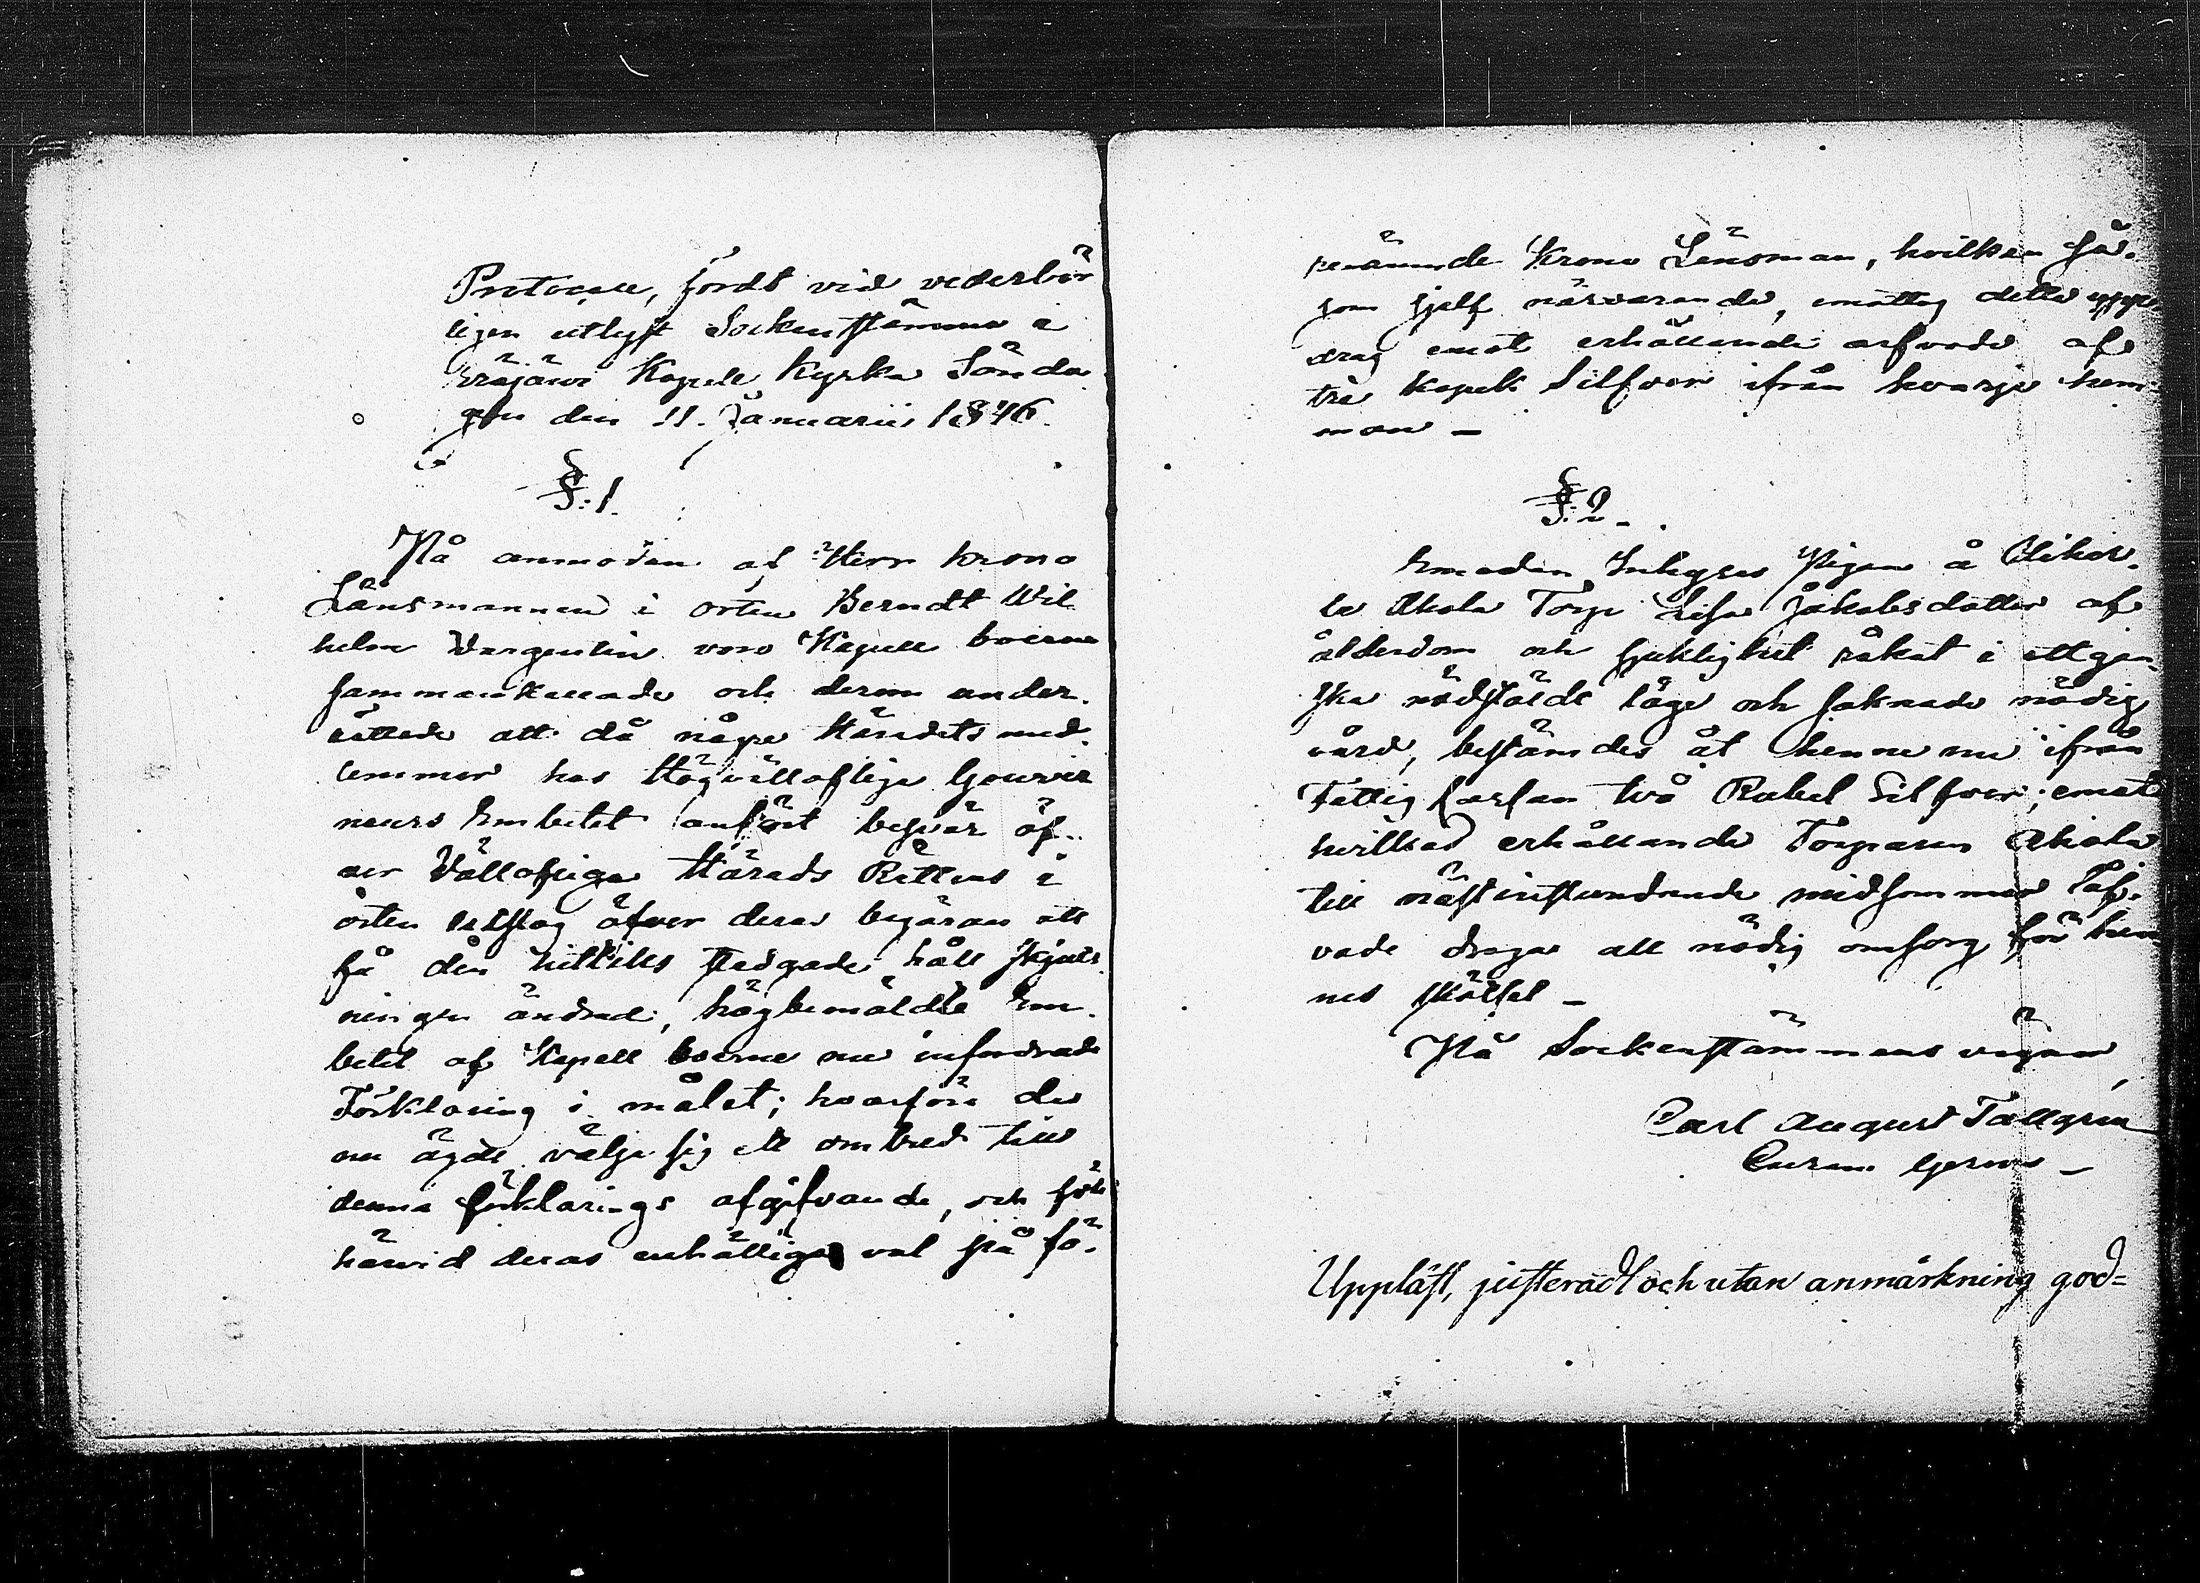 Protocoll, fördt vid vederbör
ligen utlyst Sockenstämma i
Eräjärvi Kapell Kyrka Sönda
gen den 11. Januarii 1846.
§. 1.
På anmodan af Herr Krono
Länsmannen i orten Berndt Wil
helm Wargentin voro Kapell boerne
sammankallade och derom under.
rättade att då någre Häradets med.
lemmar hos Högvällofliga Gouver
neurs Embetet anfört besvär öf.
ver Vällofliga Härads Rättens i
orten utslag öfver deras begäran att
få den hittills stadgade håll skjuts
ningen ändrad, högbemäldte Em.
betet af Kapell boerne nu infordrade
Förklaring i målet; hvarföre de
nu ägde välja sig ett ombud till
denna förklarings afgifvande, och föll
härvid deras enhälliga val på fö.
renämnde Krono Länsman, hvilken så.
som sjelf närvarande, emottog detta upp
drag emot erhållande arfvode af
tre kopek Silfver ifrån hvarje hem
man —
§. 2.
Emedan Inhyses Pigan å
Ahola Torp Lisa Jakobsdotter af
ålderdom och sjuklighet råkat i ett gan
ska nödstäldt läge och saknade nödig
vård, bestämdes åt henne nu ifrån
Fattig kassan två Rubel Silfver; emot
hvilkas erhållande Torparen Ahola
till nästinstundande midsommar låf.
vade draga all nödig omsorg för hen
nes skötsel —
På Sockenstämmans vägnar
Carl August Tallgren
Curam gerens —
Uppläst, justeradt och utan anmärkning god=